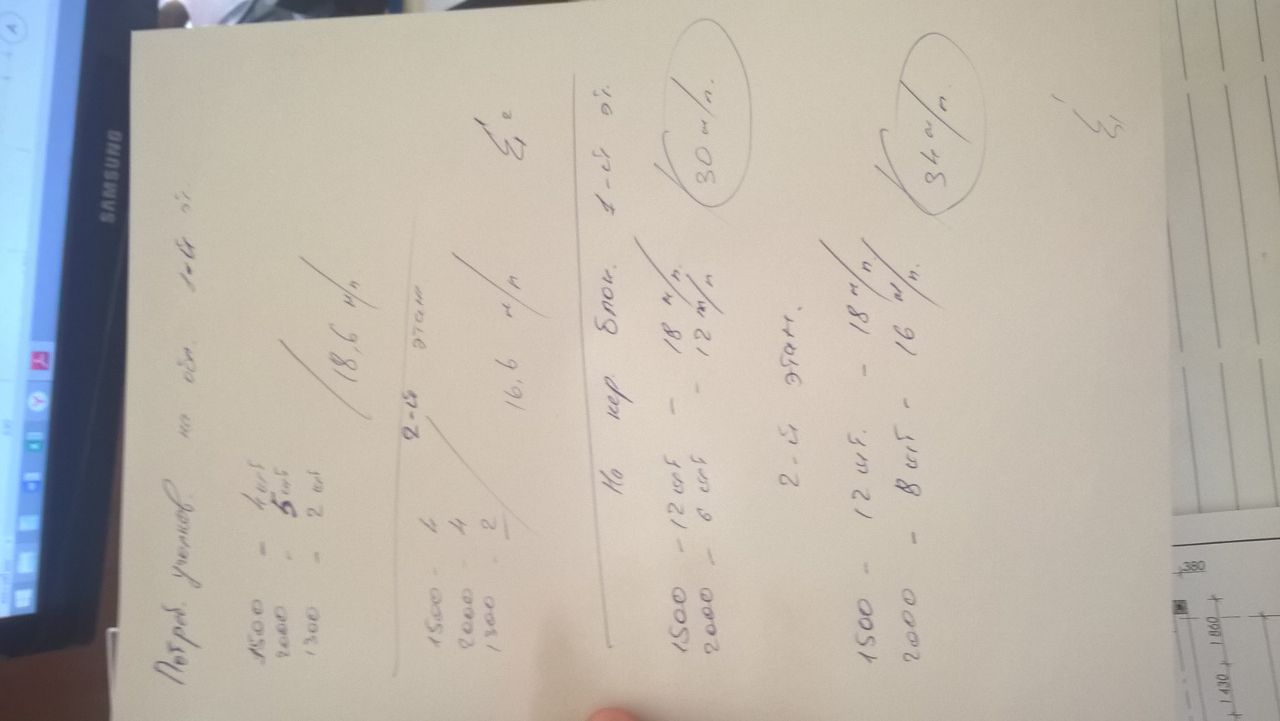 Потреб. уголков. на обл. 1-ый эт.
1500 - 4 шт
2000 - 5 шт
1300 - 2 шт
18,6 м/п
2-ой этаж
1500 - 4
2000 - 4
1300 - 2
16,6 м/п
На кер. блок. 1-ый эт.
1500 - 12 шт - 18 м/п.
2000 - 6 шт - 12 м/п
30 м/п.
2-й этаж.
1500 - 12 шт. - 18 м/п.
2000 - 8 шт - 16 м/п.
34 м/п.
SAMSUNG
380
1 860
1 430